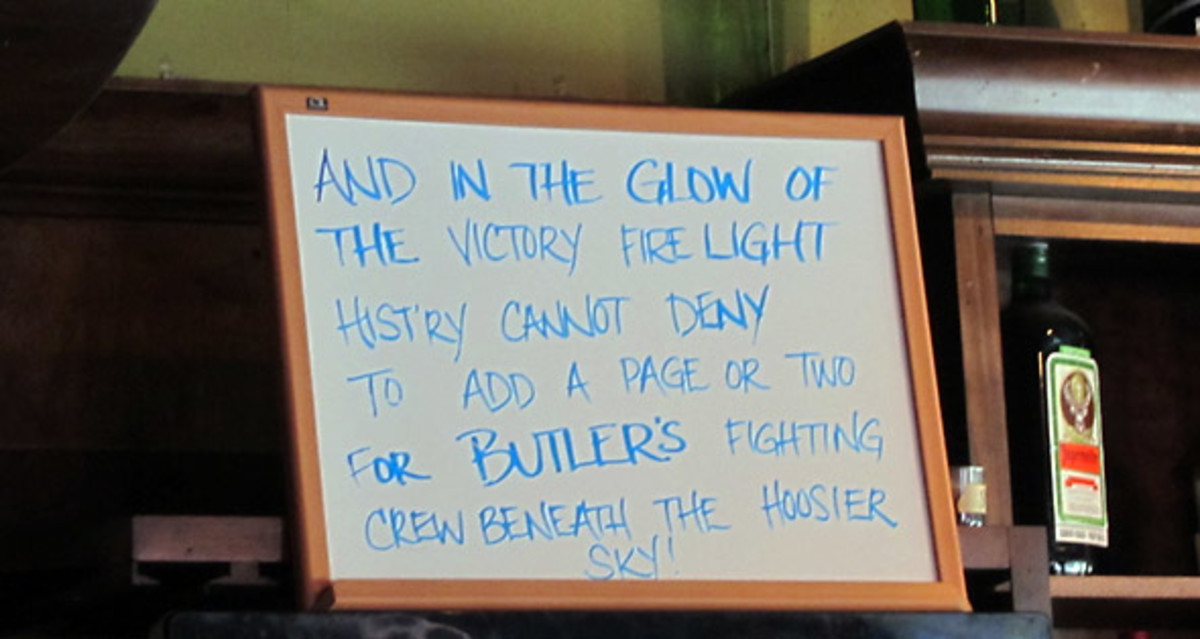 AND IN THE GLOW OF
THE VICTORY FIRE LIGHT
HIST'RY CANNOT DENY
TO ADD A PAGE OR TWO
FOR BUTLER'S FIGHTING
CREW BENEATH THE HOOSIER
SKY!